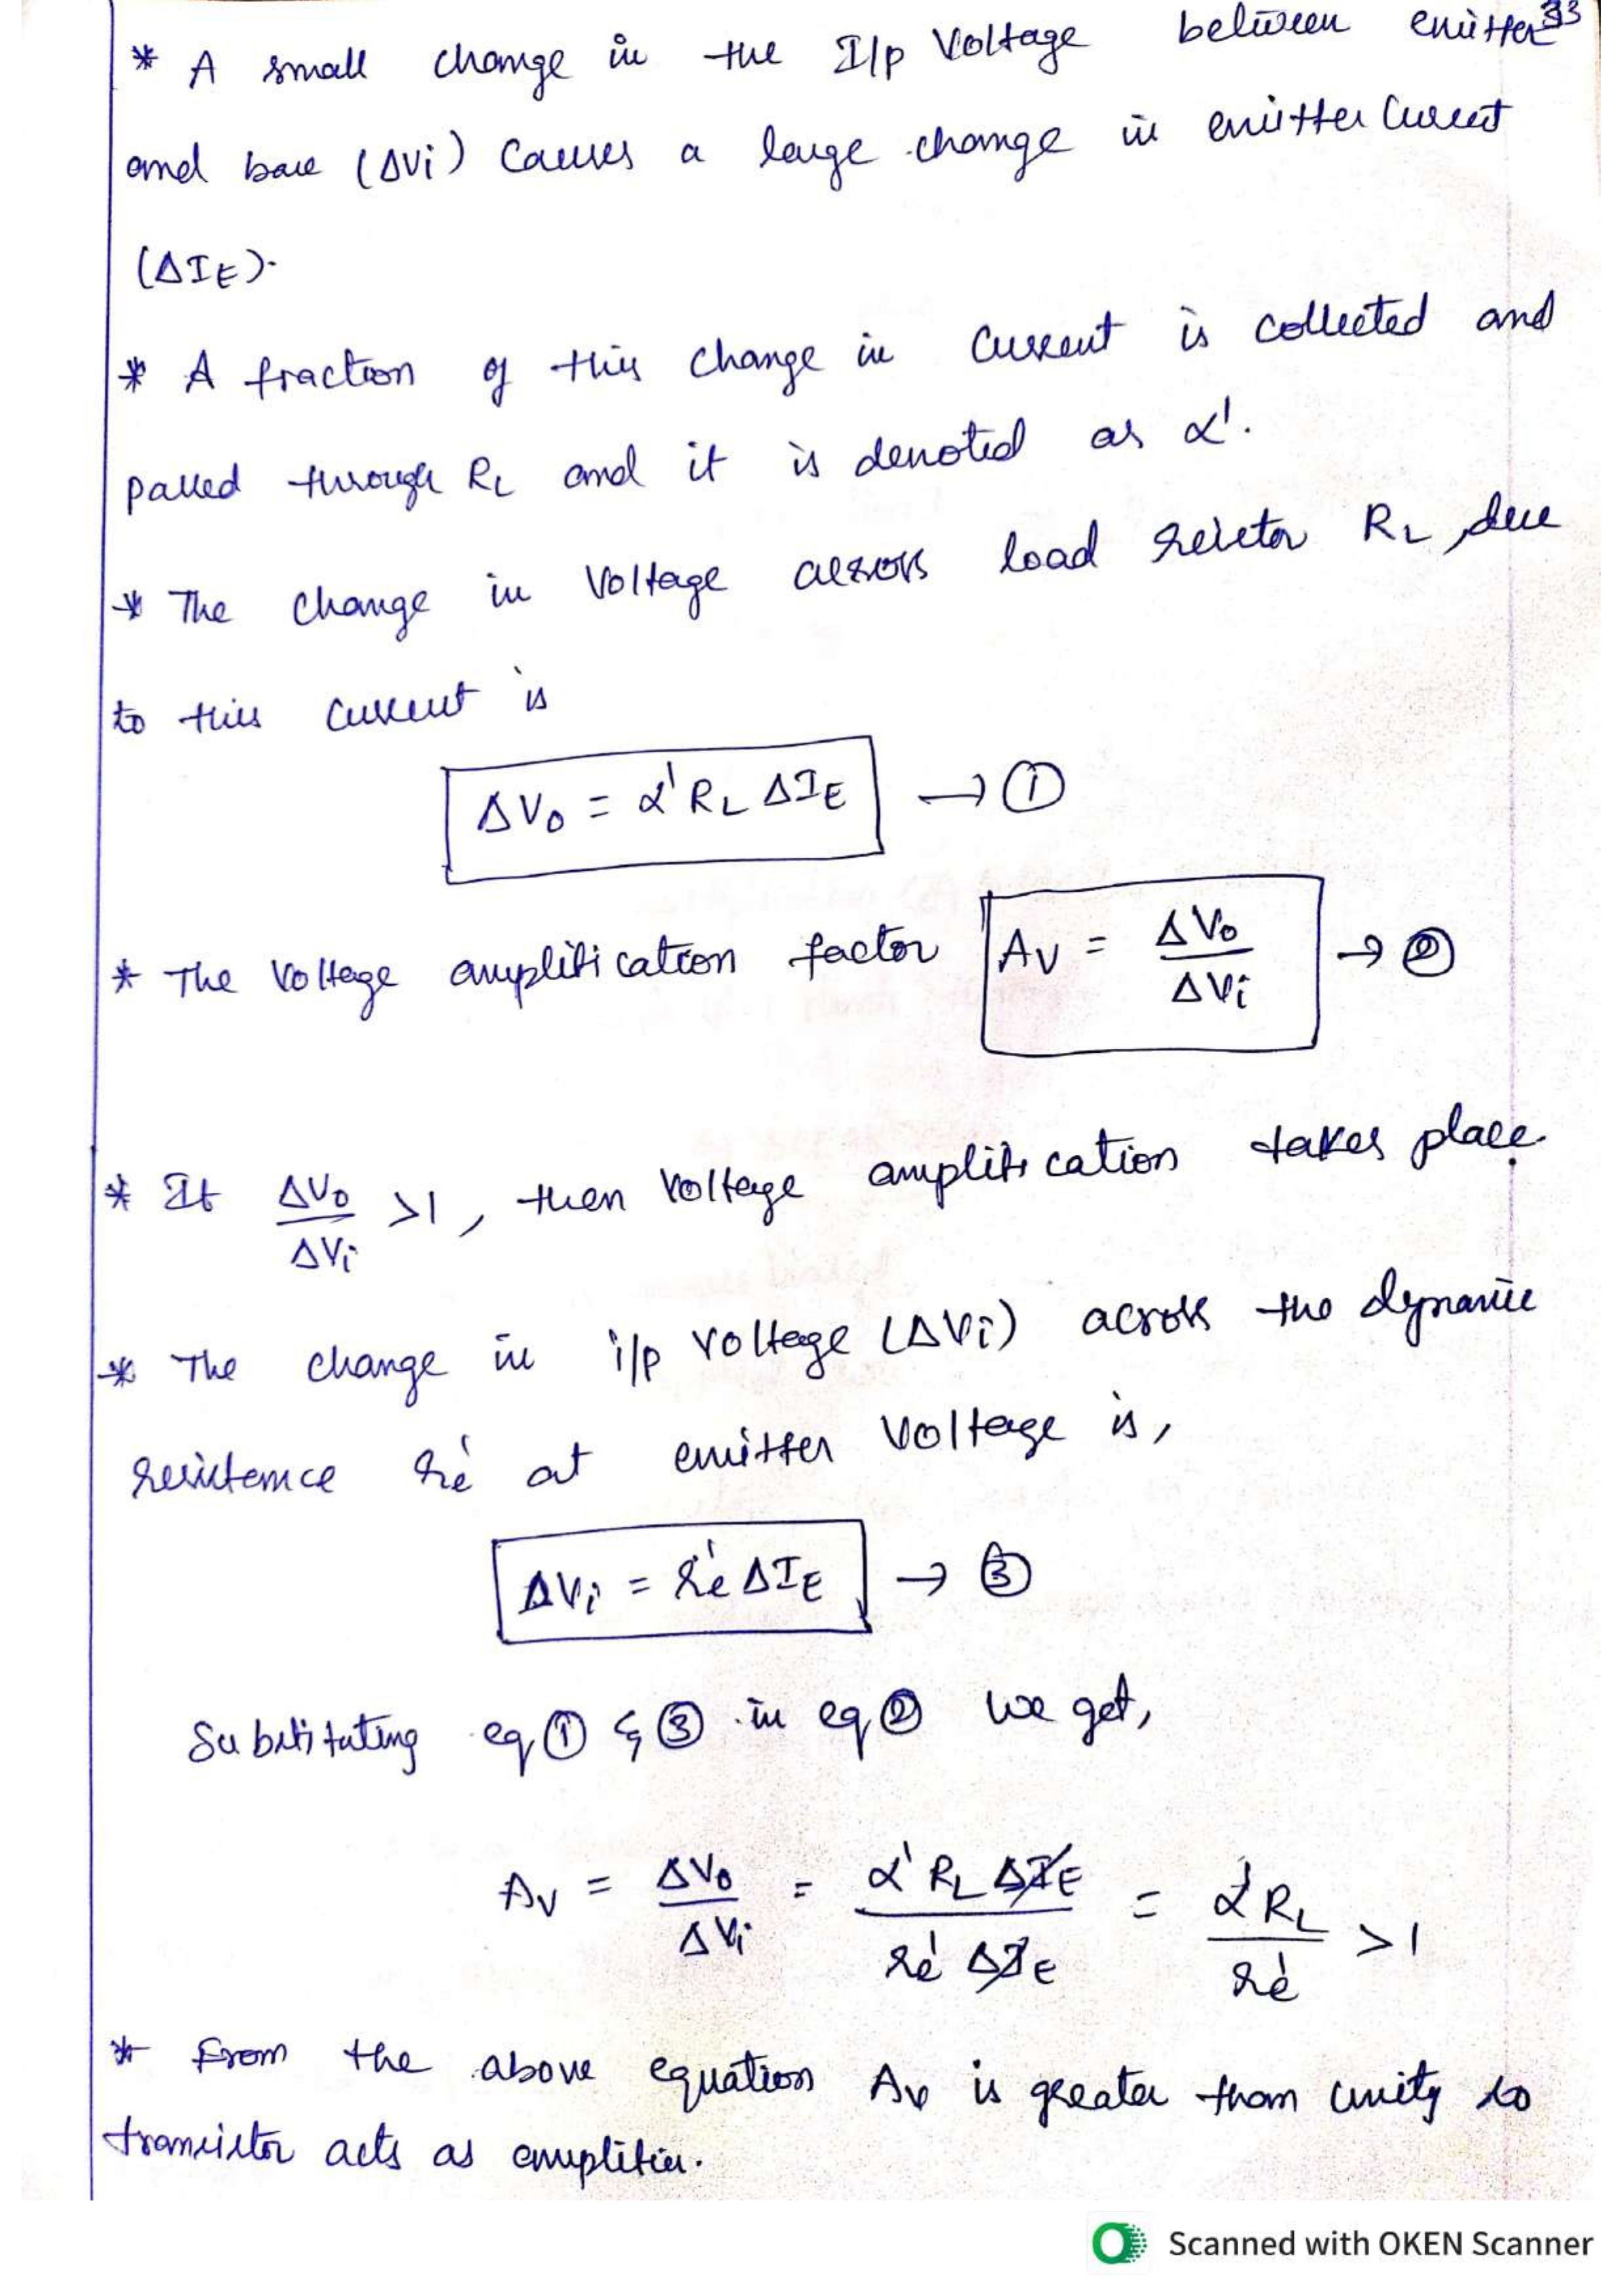 33
* A small change in the I/p Voltage between emitter
and base (ΔVi) Causes a large change in emitter Current
(ΔIE).
* A fraction of this change in Current is collected and
passed through RL and it is denoted as α'.
* The change in Voltage across load resistor RL, due
to this current is
ΔVo = α' RL ΔIE → ①
* The Voltage amplification factor AV = ΔVo / ΔVi → ②
* If ΔVo / ΔVi >1, then Voltage amplification takes place.
* The change in i/p Voltage (ΔVi) across the dynamic
resistance re' at emitter Voltage is,
ΔVi = re' ΔIE → ③
Substituting eq ① & ③ in eq ② we get,
AV = ΔVo / ΔVi = α' RL ΔIE / re' ΔIE = α' RL / re' >1
* From the above equation AV is greater than unity so
transistor acts as amplifier.
Scanned with OKEN Scanner